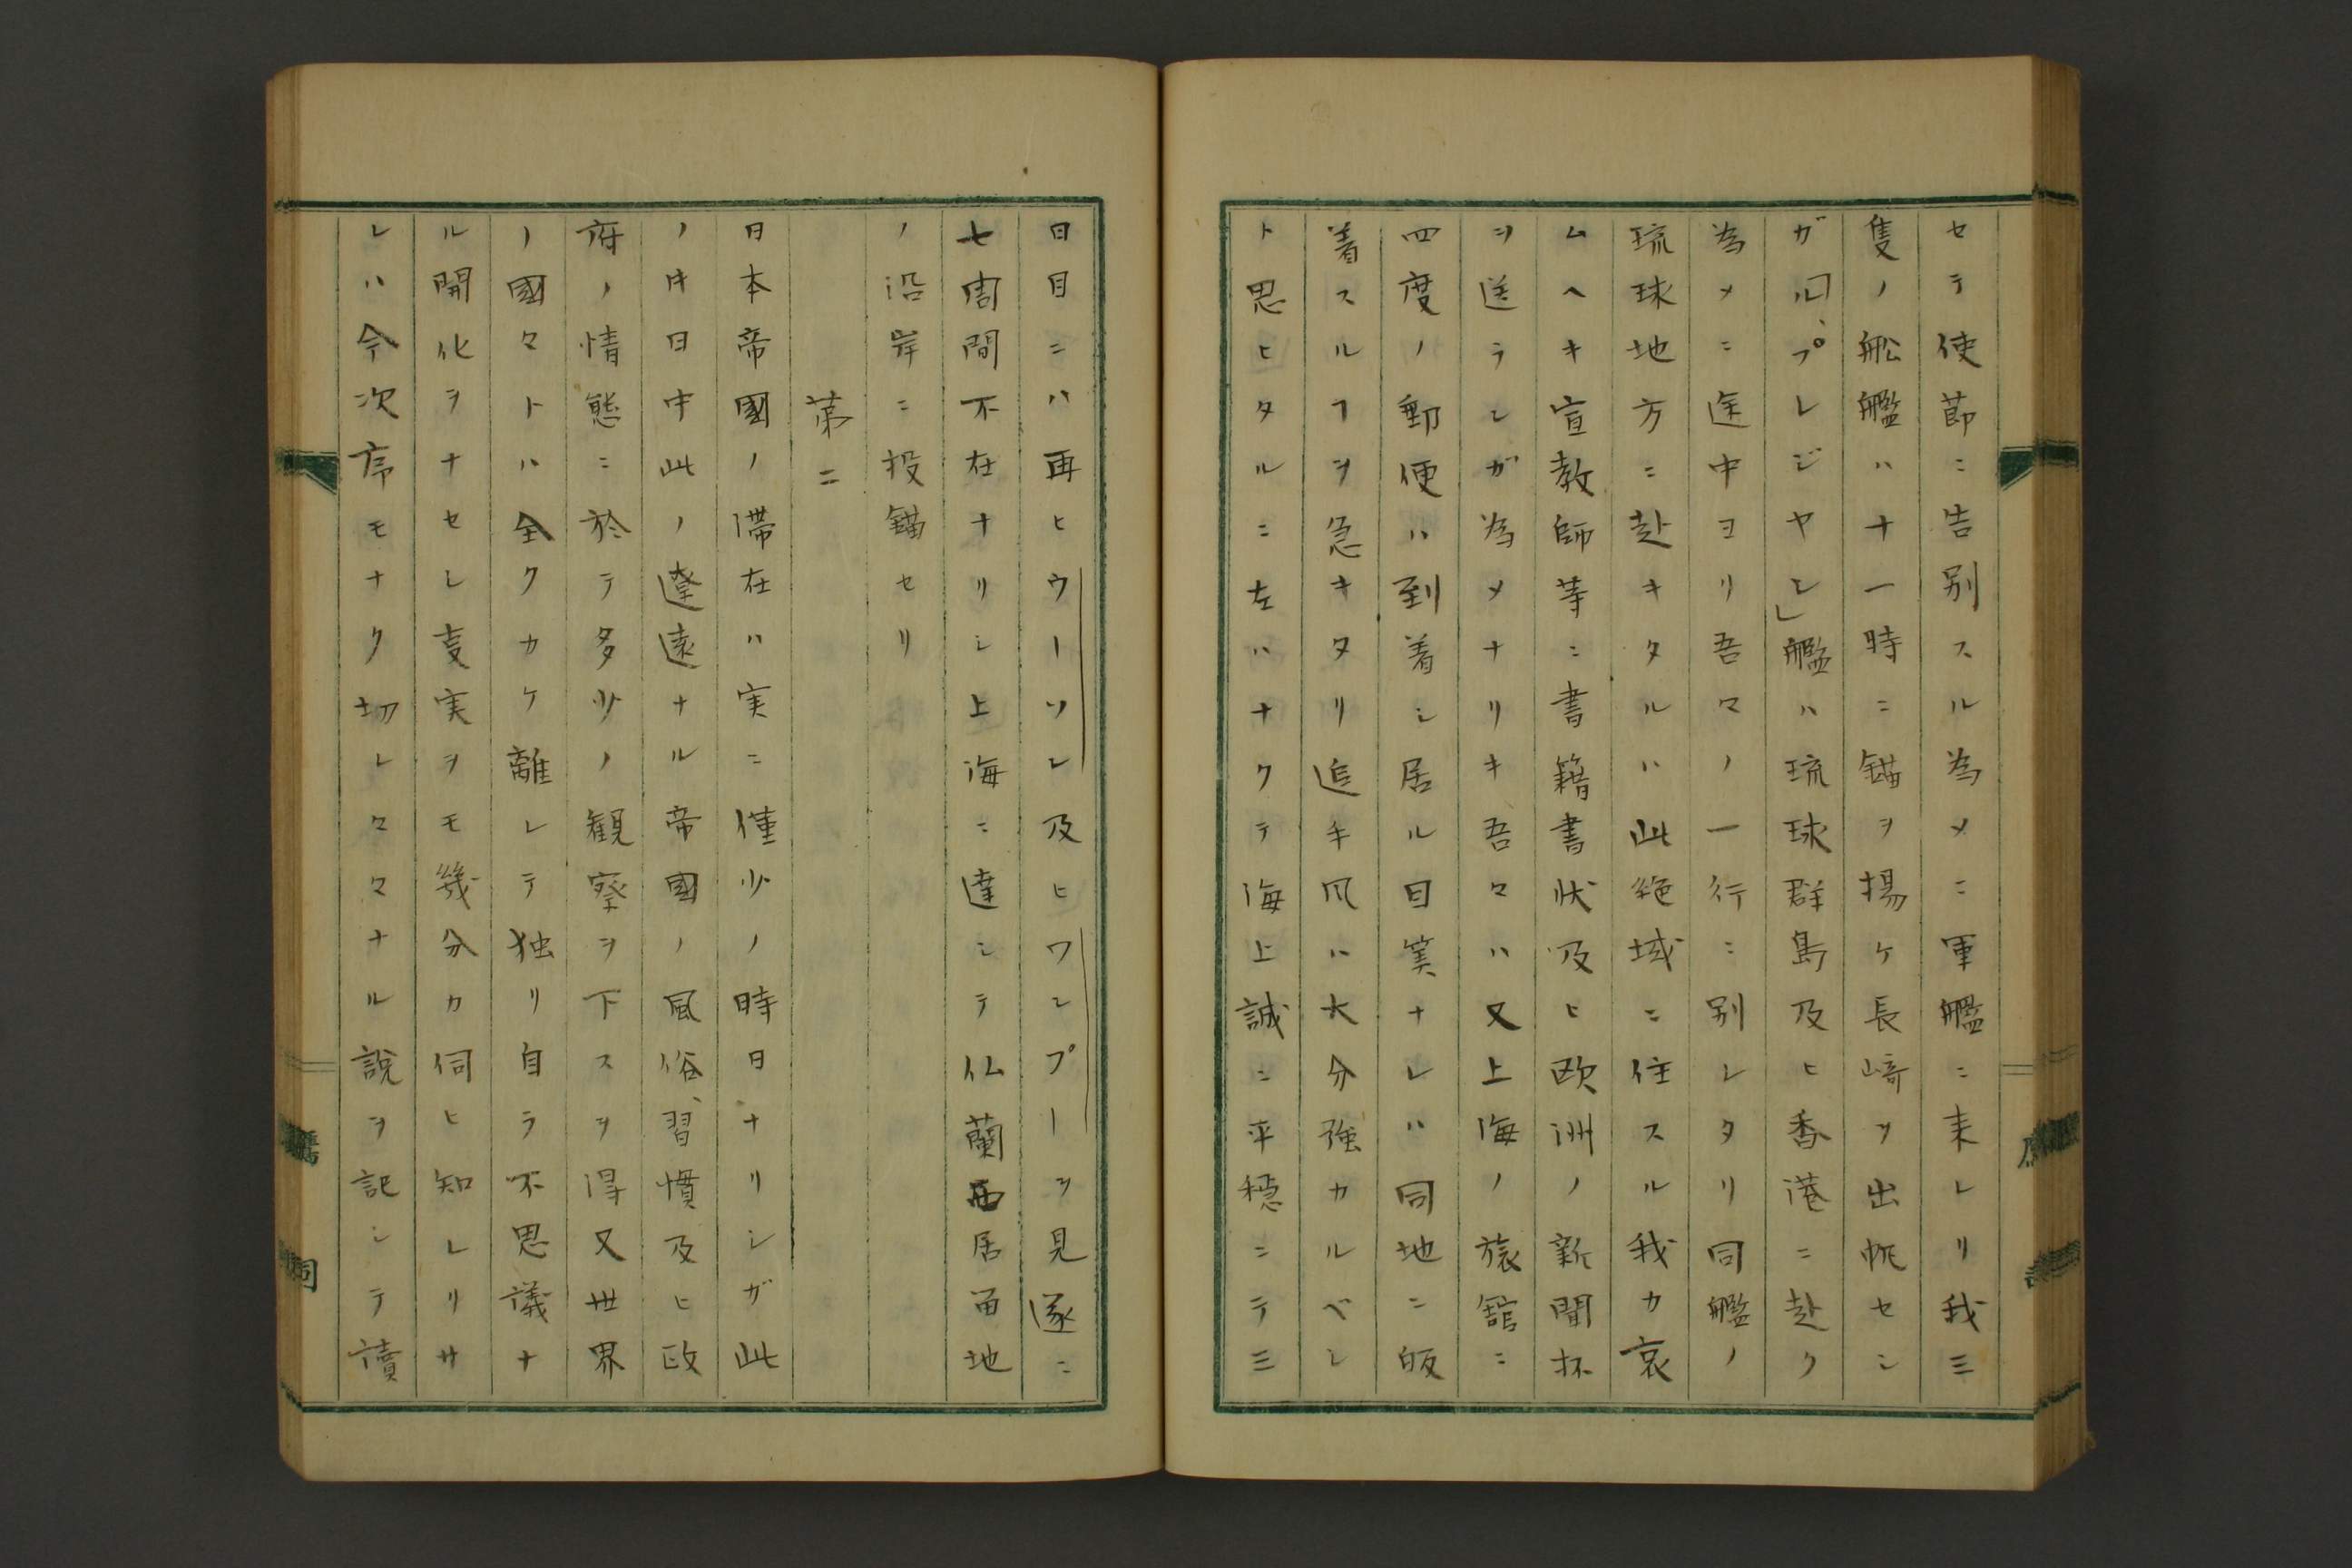 セテ使節ニ告別スル為メニ軍艦ニ来レリ我三
隻ノ舩艦ハ十一時ニ錨ヲ揚ケ長﨑ヲ出帆セシ
ガ「ル、プレジヤン」艦ハ琉球群島及ヒ香港ニ赴ク
為メニ途中ヨリ吾々ノ一行ニ別レタリ同艦ノ
琉球地方ニ赴キタルハ此絶域ニ住スル我カ哀
ムヘキ宣教師等ニ書籍書状及ヒ欧洲ノ新聞抔
ヲ送ランガ為メナリキ吾々ハ又上海ノ旅舘ニ
四度ノ郵便ハ到着シ居ル目筭ナレハ同地ニ皈
着スルヿヲ急キタリ追手風ハ大分強カルベシ
ト思ヒタルニ左ハナクテ海上誠ニ平穏ニテ三
日目ニハ再ヒウーソン及ヒワンプーヲ見遂ニ
七周間不在ナリシ上海ニ達シテ仏蘭西居留地
ノ沿岸ニ投錨セリ
第二
日本帝國ノ滞在ハ実ニ僅少ノ時日ナリシガ此
ノ時日中此ノ遼遠ナル帝國ノ風俗、習慣及ヒ政
府ノ情態ニ於テ多少ノ観察ヲ下スヲ得又世界
ノ國々トハ全クカケ離レテ独リ自ラ不思議ナ
ル開化ヲナセシ支実ヲモ幾分カ伺ヒ知レリサ
レハ今次序モナク切レ々々ナル説ヲ記シテ讀